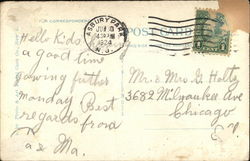 FOR CORRESPONDENCE
POST CARD
ASBURY PARK
JUN
1924
N.J.
Hello Kids
a good time
going
monday Best
regards from
Ma.
Mr. & Mrs G. Holtz
3682 Milwaukee Ave
Chicago